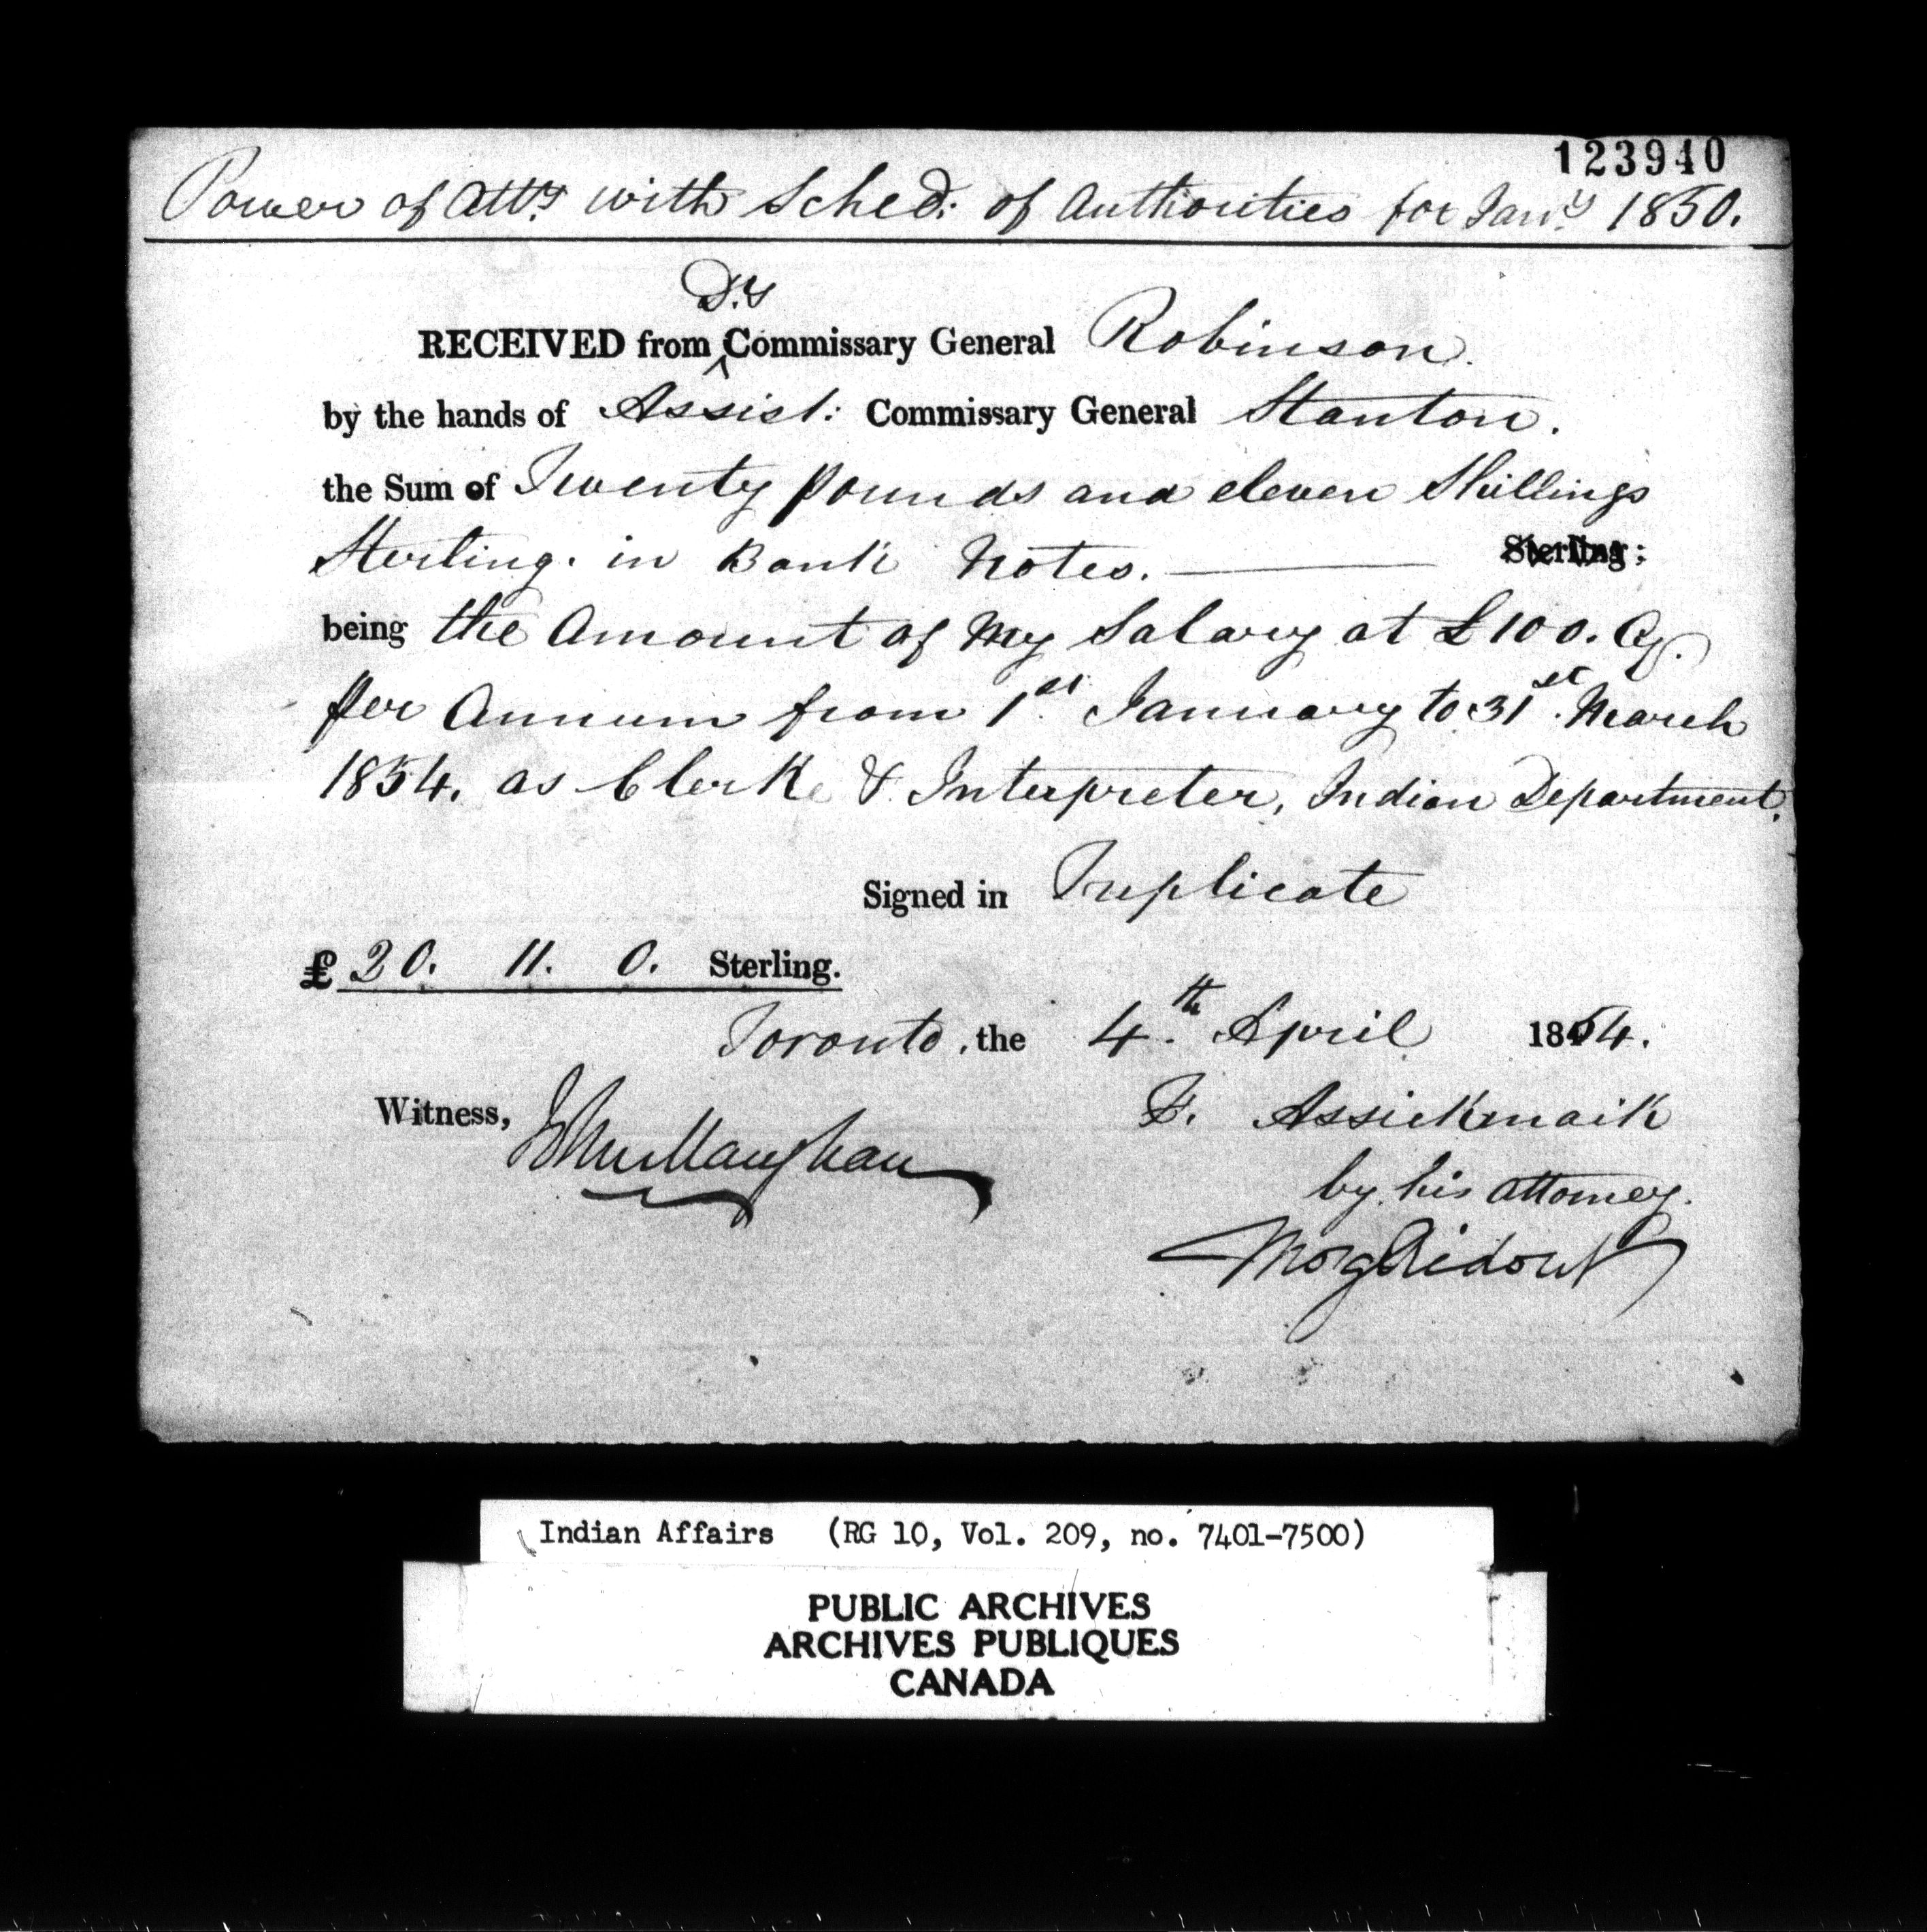 123940
Power of Atty. with Sched: of Authorities for Jany. 1850.
Dy
RECEIVED from ^ Commissary General Robinson.
by the hands of Assist: Commissary General Stanton.
the Sum of Twenty pounds and eleven Shillings
Sterling. in Bank Notes. Sterling:
being the Amount of My Salary at £100. Cy.
per Annum from 1st. January to 31st. March
1854. as Clerk & Interpreter, Indian Department.
Signed in Triplicate
£ 20. 11. 0. Sterling.
Toronto, the 4th. April 1854.
Witness, F. Assickinaik
by his attorney.
Indian Affairs (RG 10, Vol. 209, no. 7401-7500)
PUBLIC ARCHIVES
ARCHIVES PUBLIQUES
CANADA